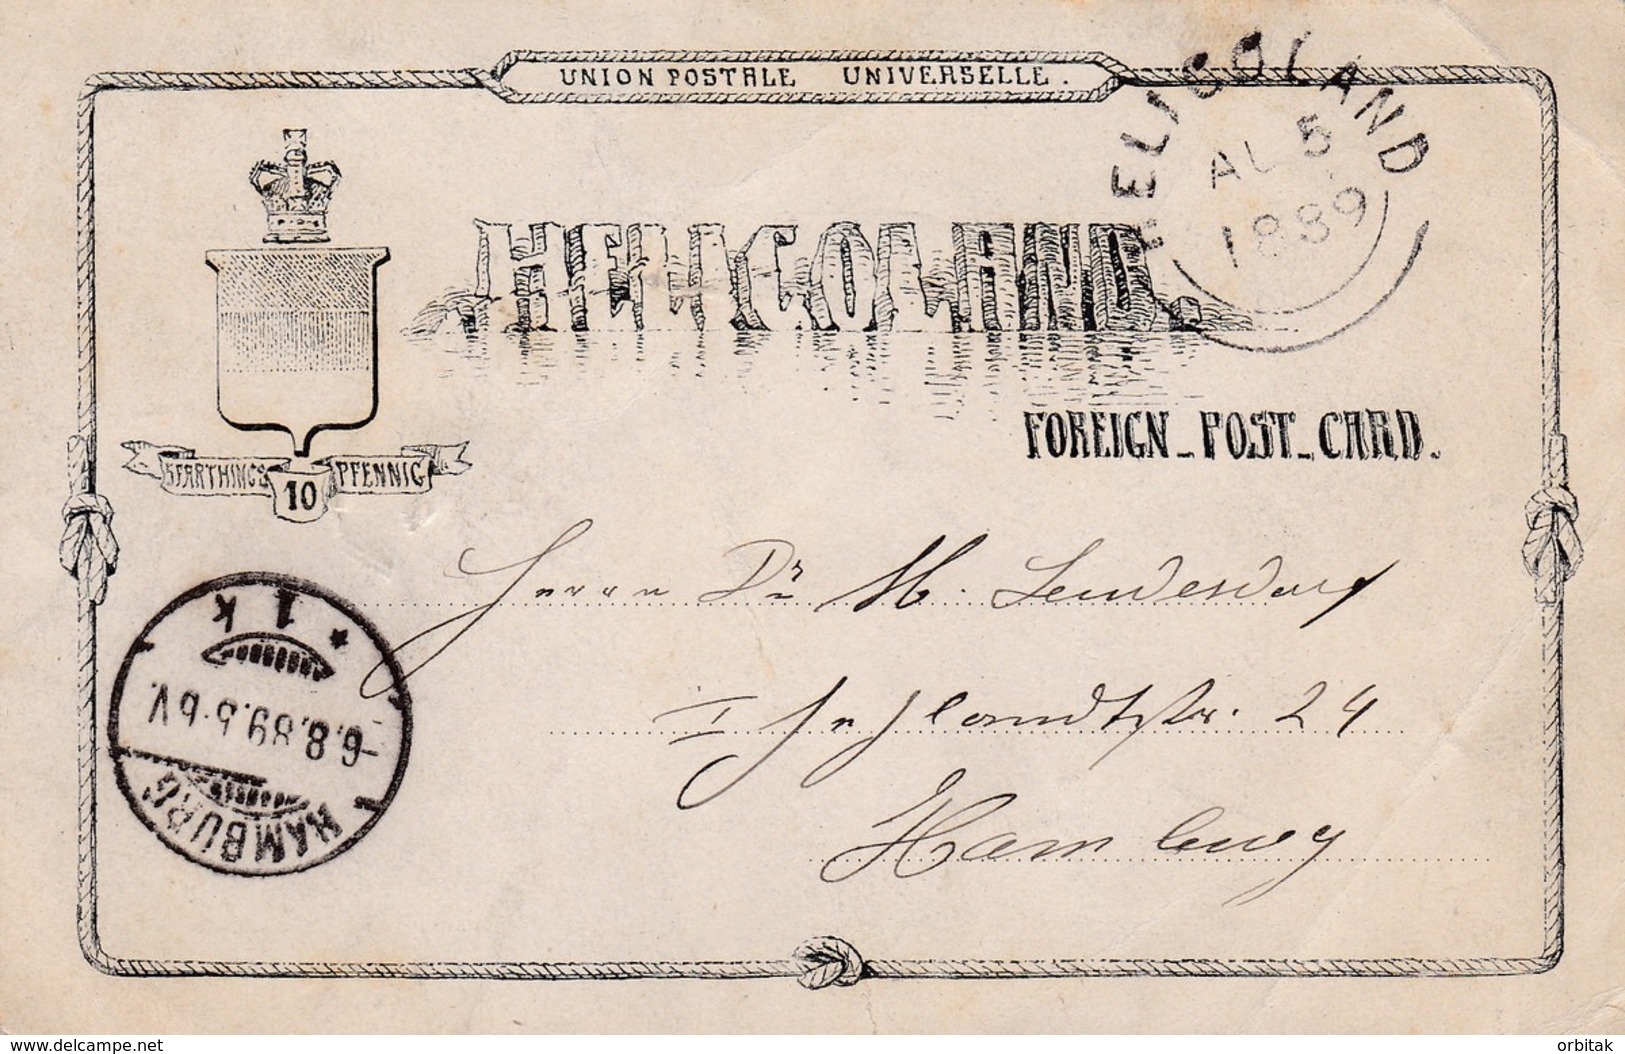 UNION POSTALE UNIVERSELLE.
HELIGOLAND
AU 5
1889
HELIGOLAND.
FOREIGN_POST_CARD.
5 FARTHINGS 10 PFENNIG
Herrn Dr M.
24
Hamburg
HAMBURG
6.8.89.5-6V.
* 1 k
www.delcampe.net
orbitak